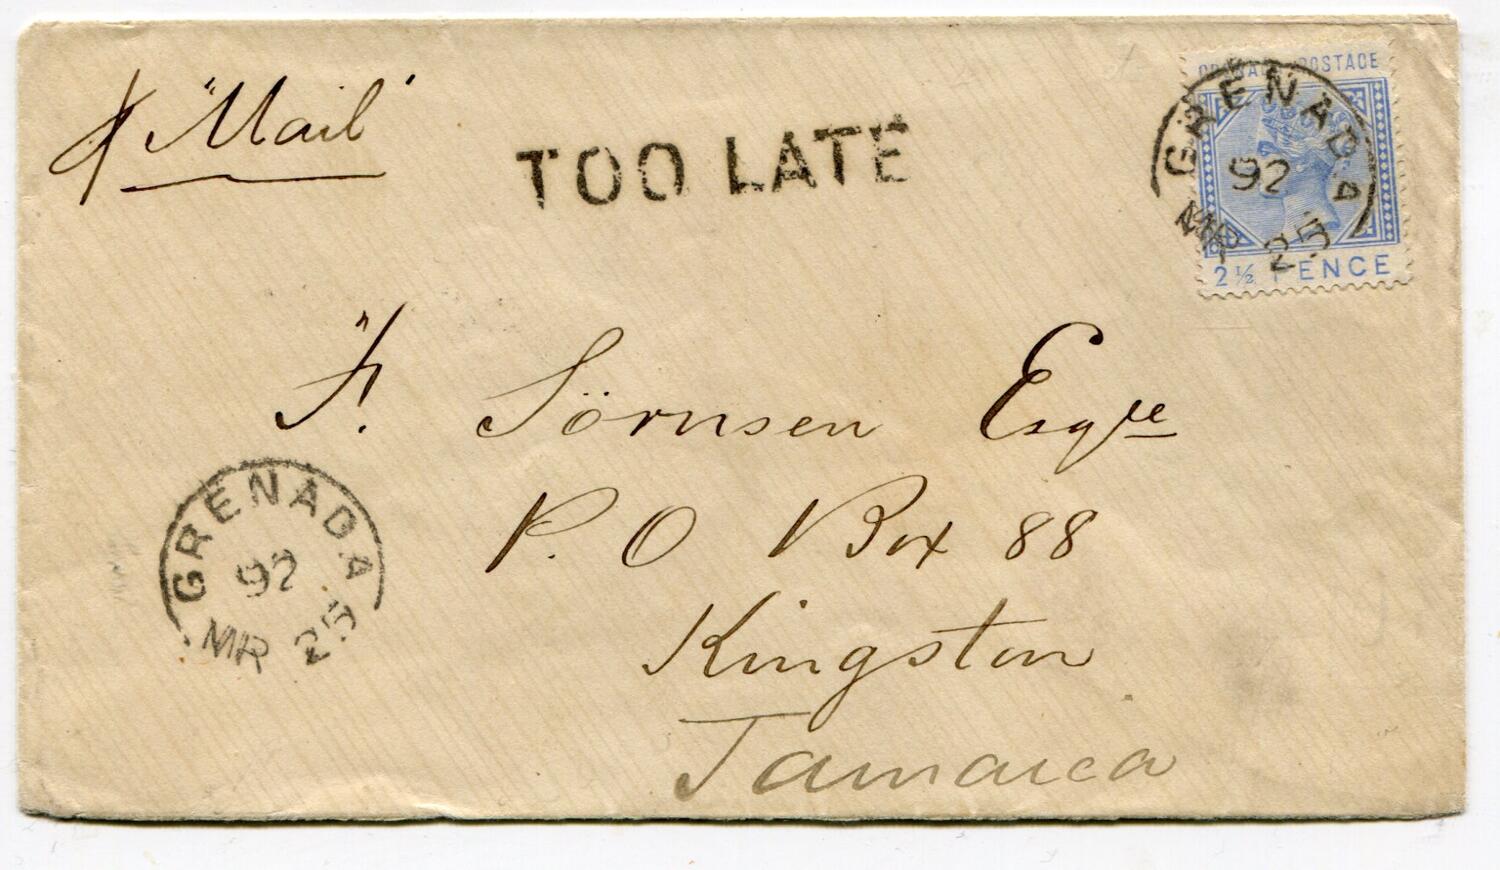 p "Mail"
TOO LATE
GRENADA POSTAGE
2½ PENCE
GRENADA
92
MR 25
F. Sörnsen Esqre
P. O Box 88
Kingston
Jamaica
GRENADA
92
MR 25